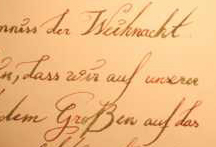 nniss der Weihnacht
n, dass wir auf unserer
dem Großen auf das